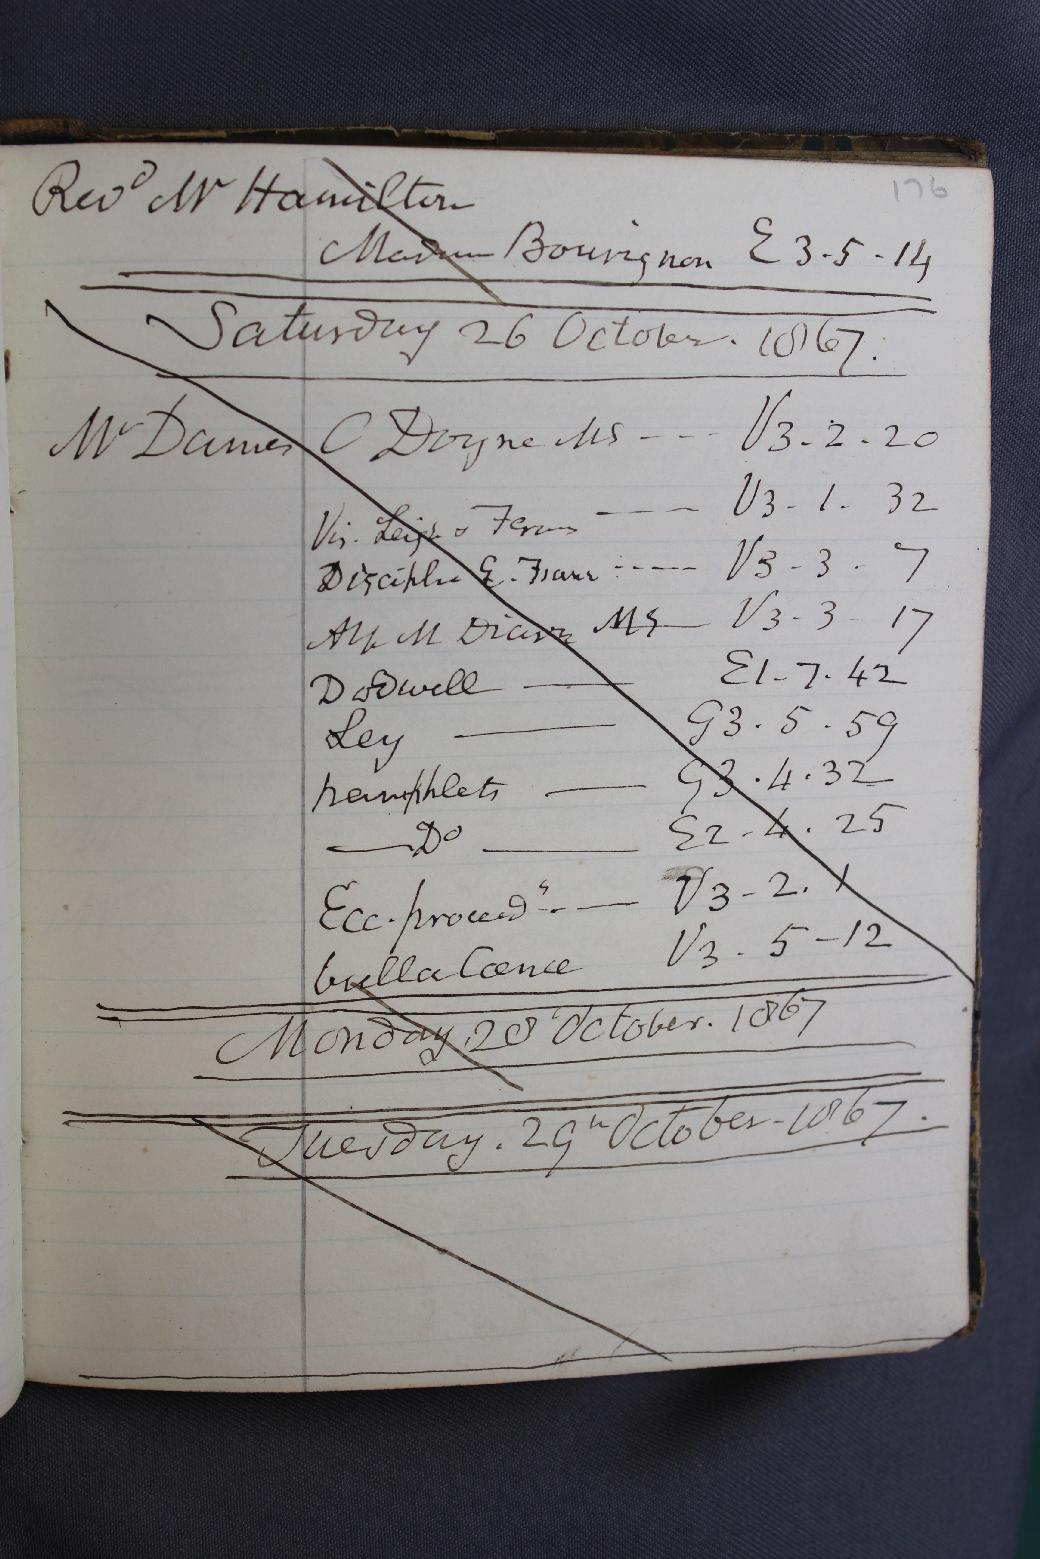 176
Revd Mr Hamilton
Madam Bourignon E 3-5-14
Saturday 26 October. 1867.
Mr Dames C Doyne MS --- V3-2-20
Vis. Leigh & Ferns --- V3-1. 32
Discipline E. Franc ---- V3-3-7
M Diary MS V3-3 17
Dodwell — E1-7-42
Ley — G3.5.59
pamphlets — G3.4.32
— Do — E2-4.25
Ecc. proceedgs — V3-2.1
bulla Coenae V3.5-12
Monday. 28 October. 1867
Tuesday. 29th October-1867.